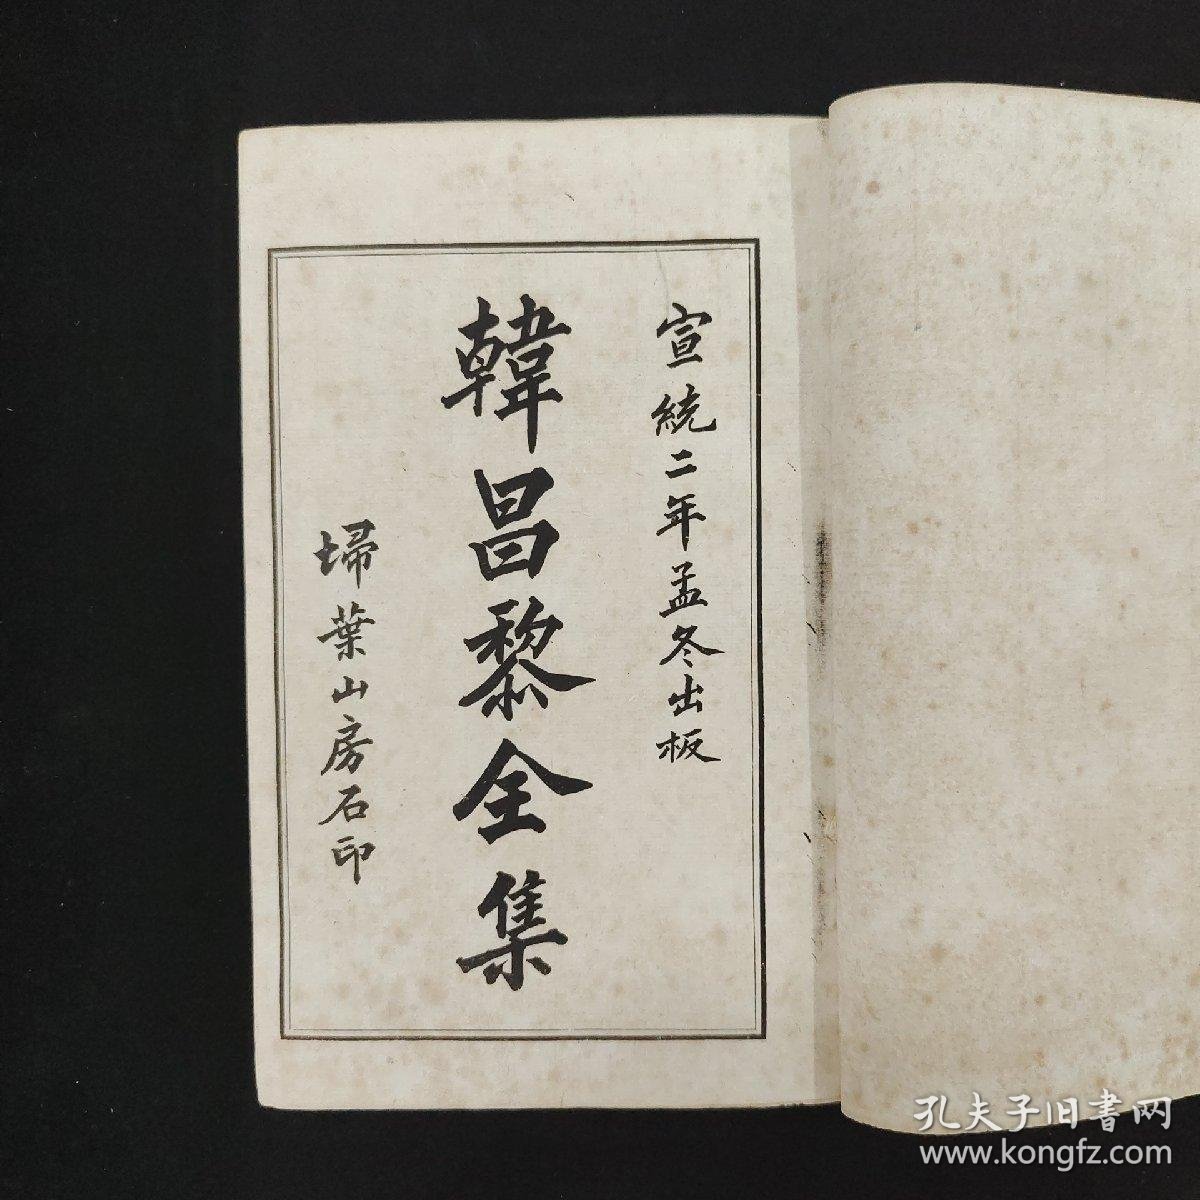 宣統二年孟冬出板
韓昌黎全集
埽葉山房石印
孔夫子旧書网
www.kongfz.com